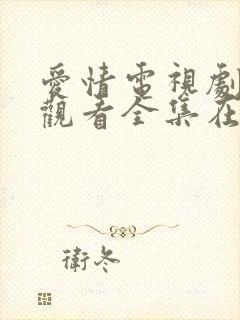 愛情電視劇
觀看全集在
衛冬